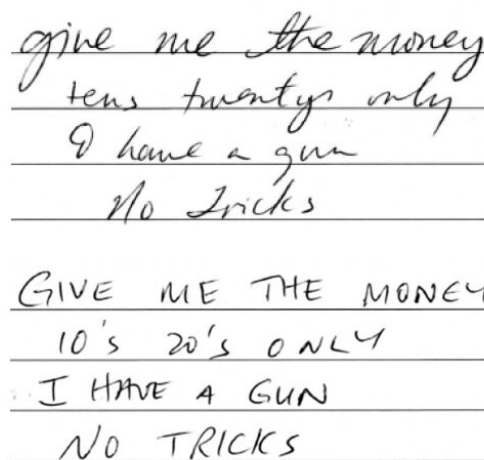 give me the money
tens twentys only
I have a gun
No Tricks
GIVE ME THE MONEY
10's 20's ONLY
I HAVE A GUN
NO TRICKS